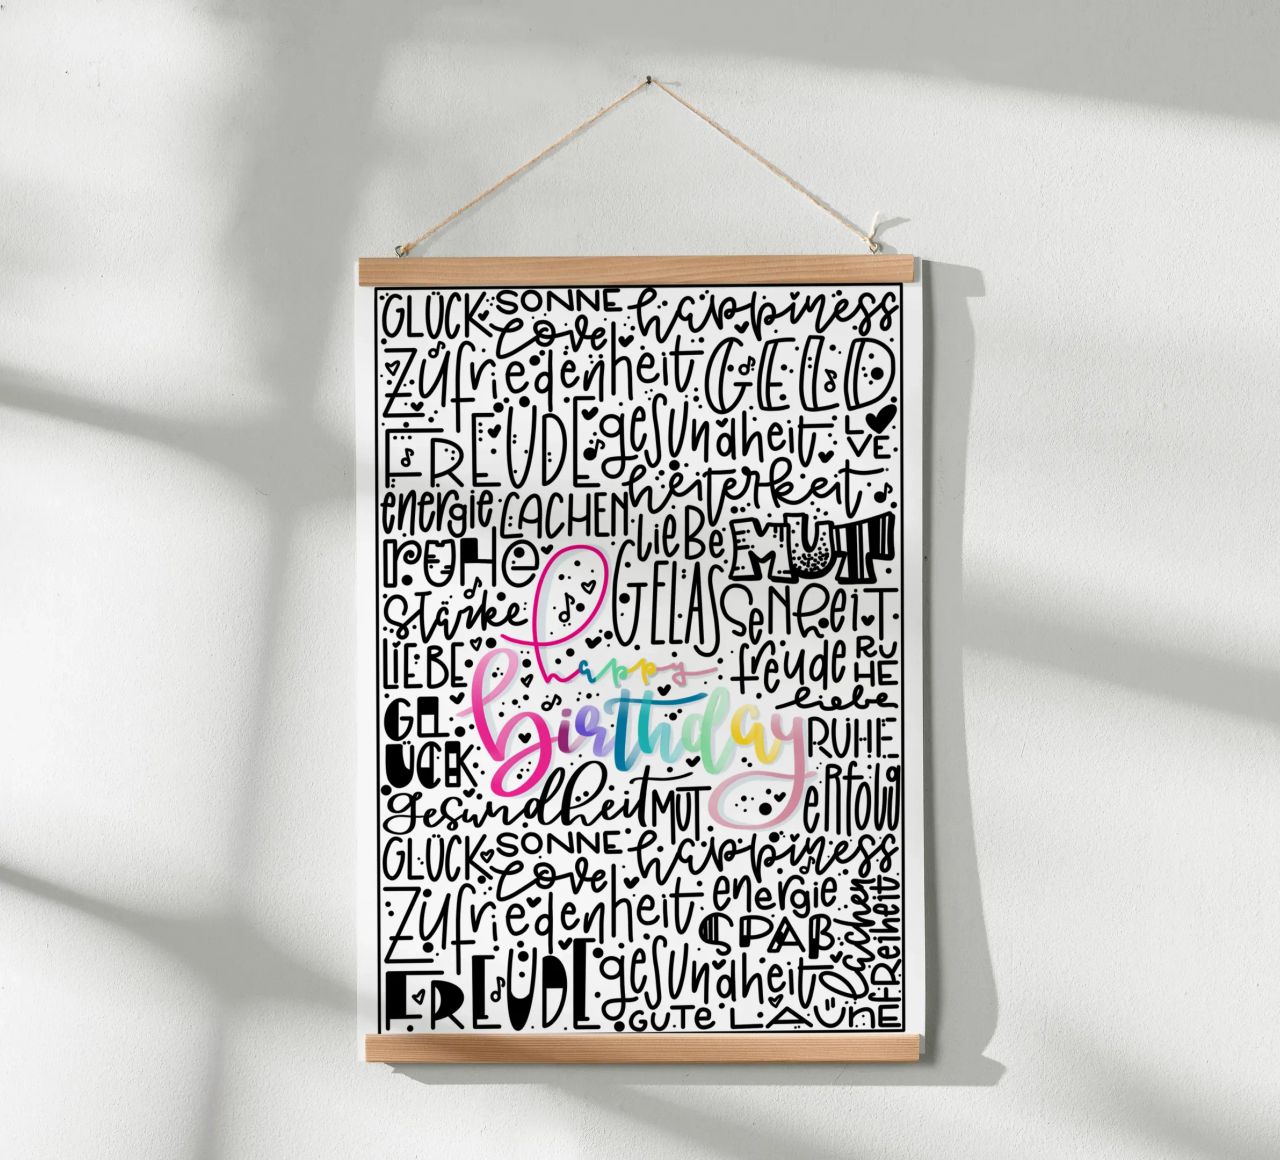 GLÜCK SONNE happiness
love
Zufriedenheit GELD
FREUDE gesundheit LVE
heiterkeit
energie LACHEN liebe MUT
RUHe GELASSenheiT
Stärke
LIEBE happy freude RUHE
liebe
GLÜCK birthday RUHE
gesundheit MUT erfolg
GLÜCK SONNE happiness
love
Zufriedenheit energie lachen
SPAß freiheit
FREUDE gesundheit
GUTe LAunE